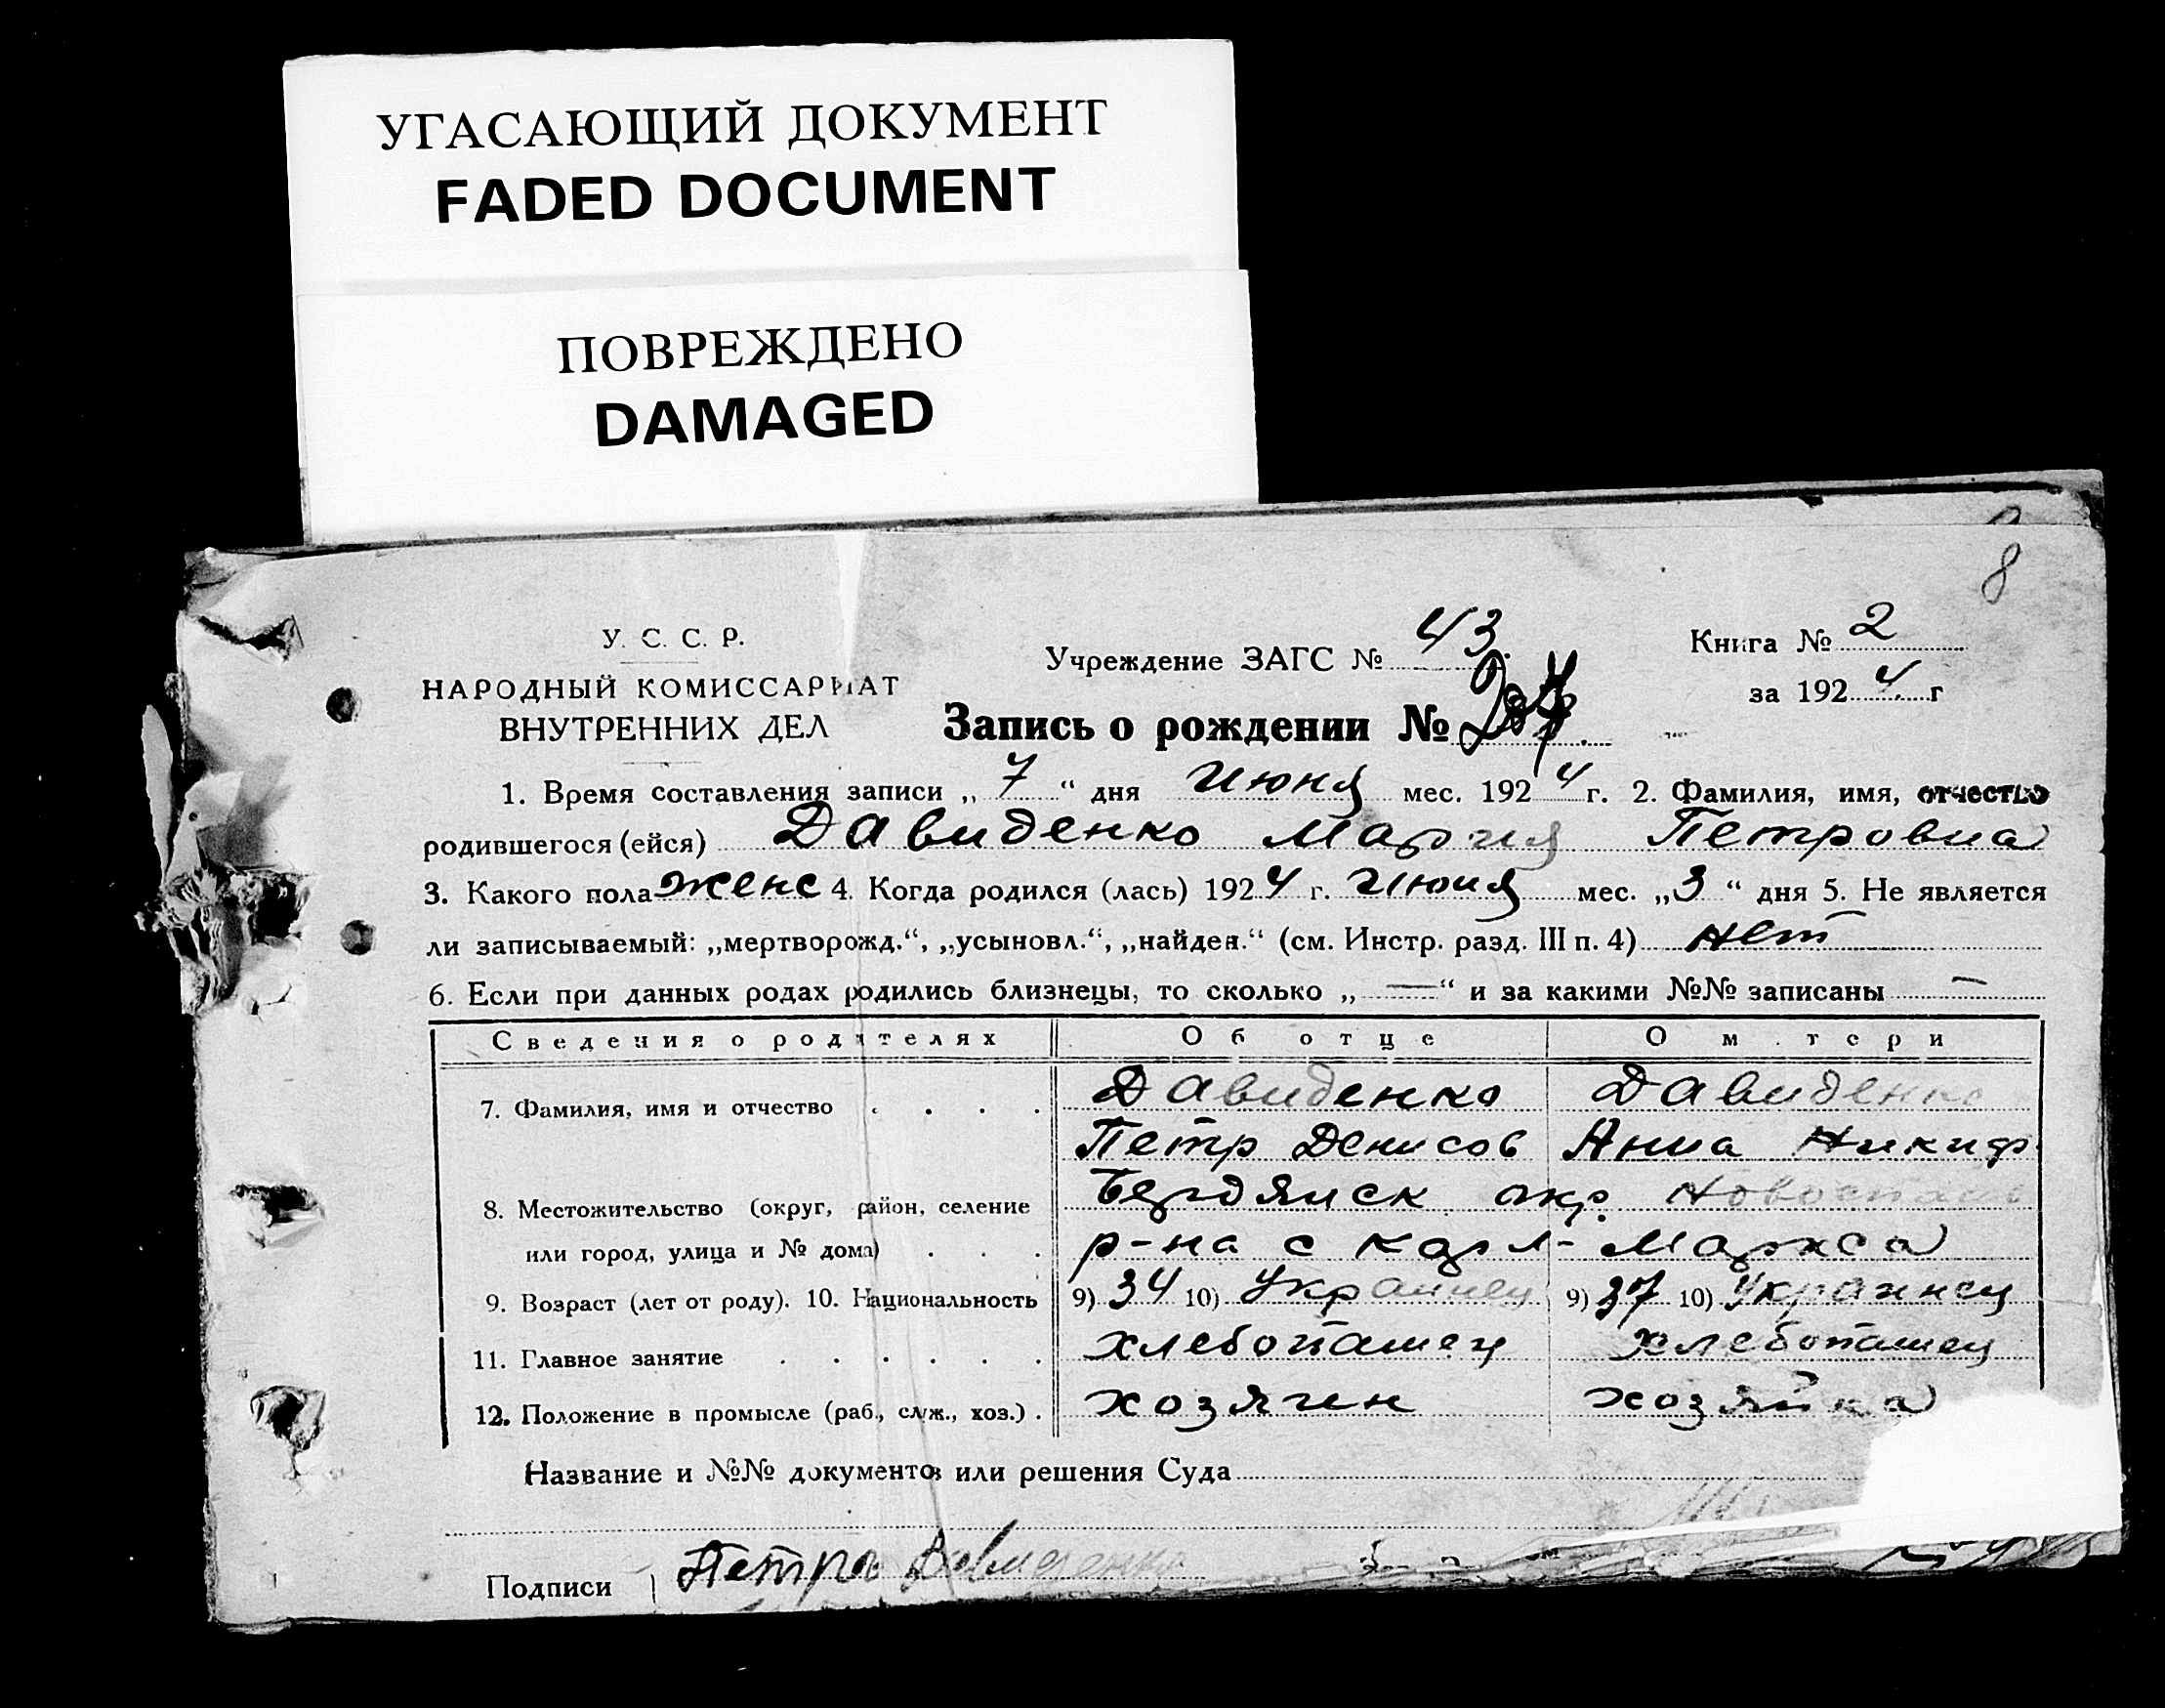 УГАСАЮЩИЙ ДОКУМЕНТ
FADED DOCUMENT
ПОВРЕЖДЕНО
DAMAGED
8
У. С. С. Р.
НАРОДНЫЙ КОМИССАРИАТ
ВНУТРЕННИХ ДЕЛ
Учреждение ЗАГС № 43.
Книга № 2
за 1924 г
Запись о рождении №
1. Время составления записи „7“ дня Июня мес. 1924 г. 2. Фамилия, имя, отчество
родившегося (ейся) Давиденко Мария Петровна
3. Какого пола женс 4. Когда родился (лась) 1924 г. Июня мес. „3“ дня 5. Не является
ли записываемый: „мертворожд.“, „усыновл.“, „найден.“ (см. Инстр. разд. III п. 4) нет
6. Если при данных родах родились близнецы, то сколько „—“ и за какими №№ записаны —
Сведения о родителях Об отце О м тери
7. Фамилия, имя и отчество . . . . Давиденко Давиденко
Петр Денисов Анна Никиф.
8. Местожительство (округ, район, селение Бердянск окр. Новоспасс
или город, улица и № дома) . . . р-на с Карл-Маркса
9. Возраст (лет от роду). 10. Национальность 9) 34 10) Украинец 9) 37 10) Украинец
11. Главное занятие . . . . . . хлебопашец хлебопашец
12. Положение в промысле (раб., служ., хоз.) . хозяин хозяйка
Название и №№ документов или решения Суда
Подписи Петро